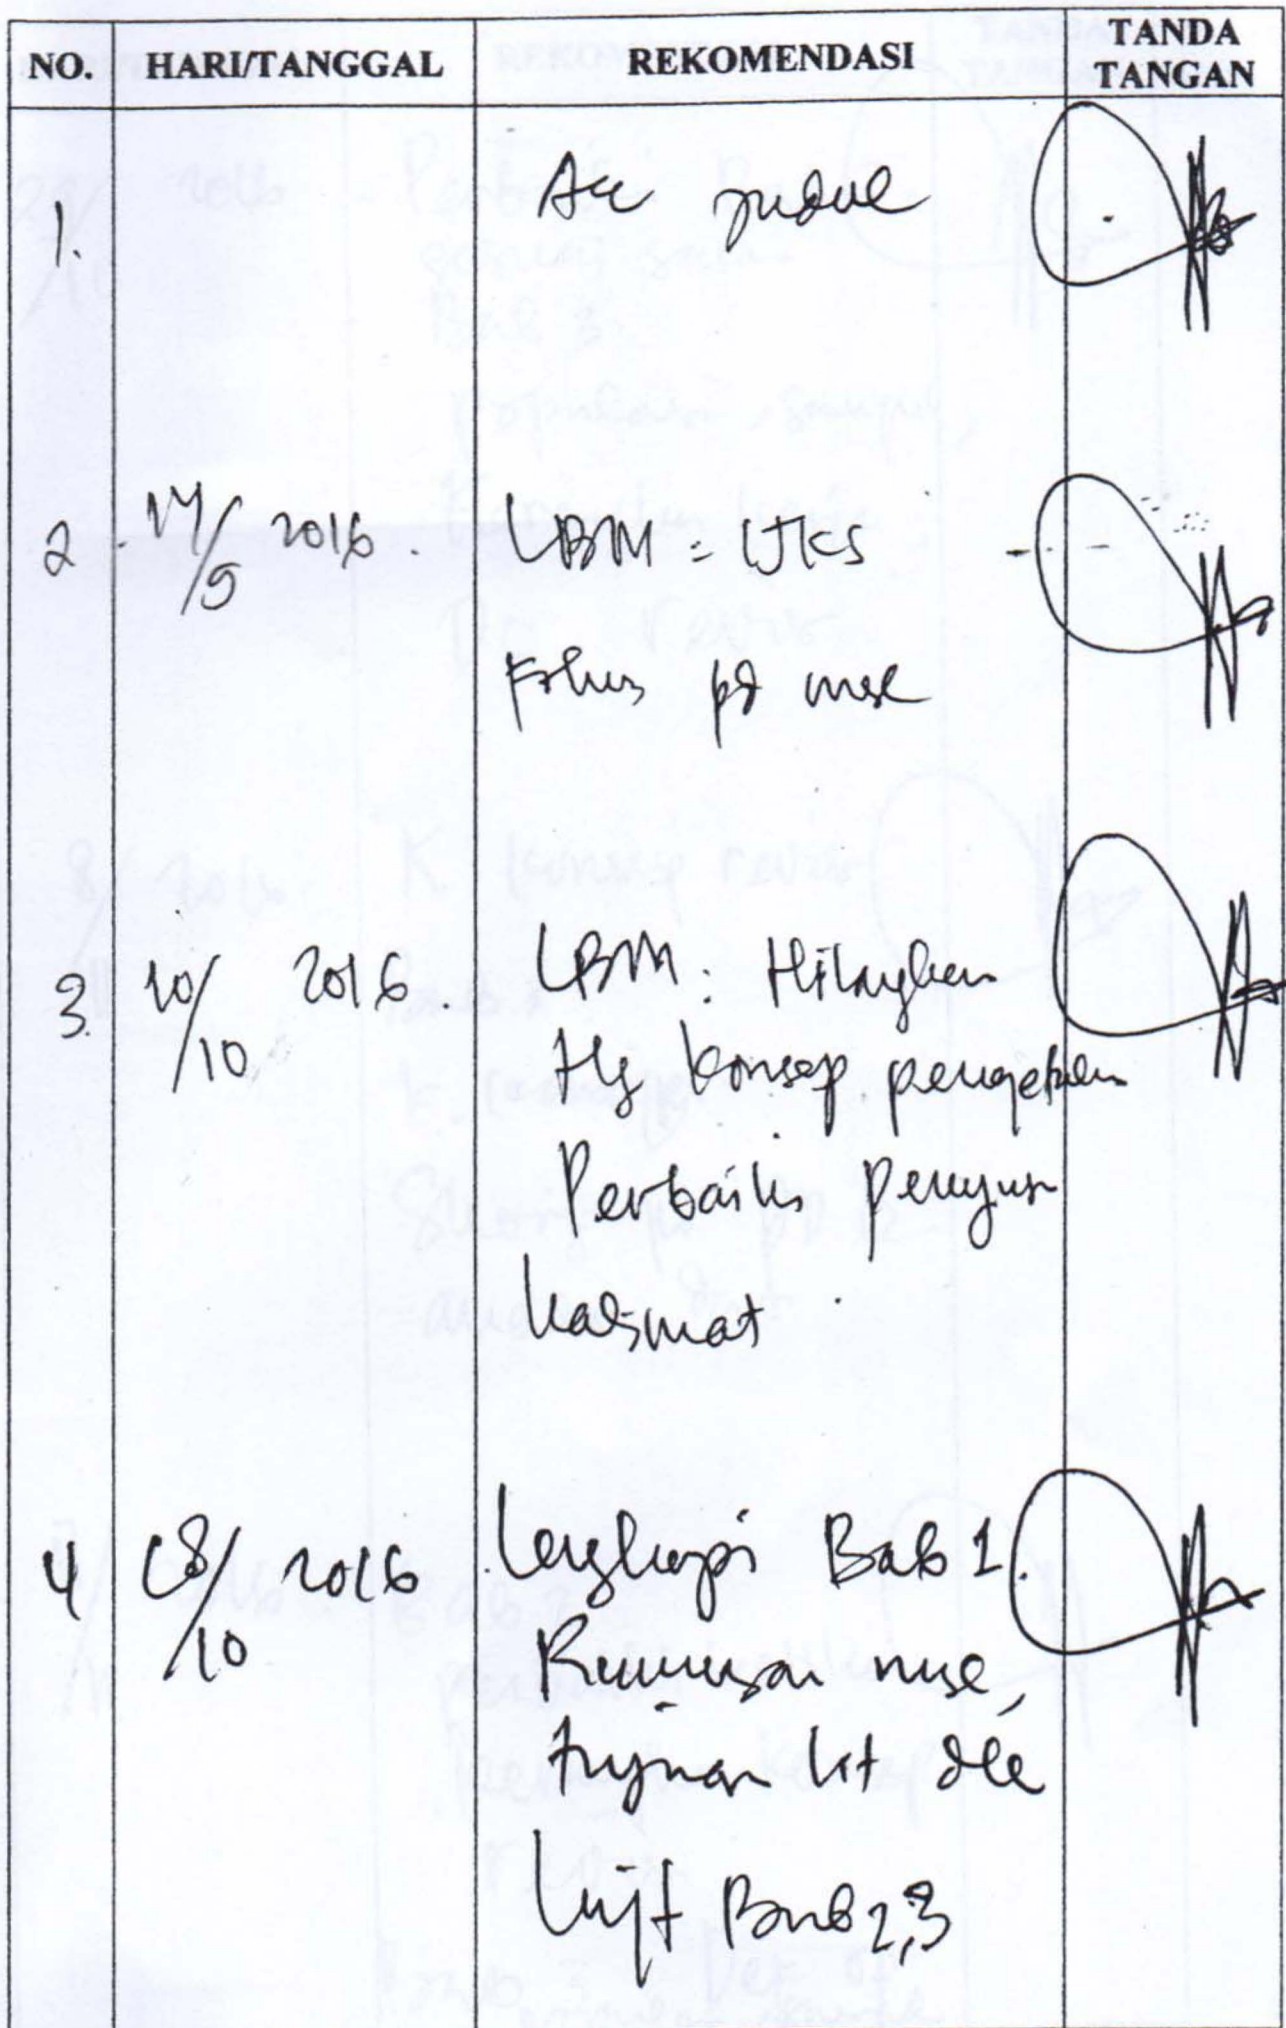 NO. HARI/TANGGAL REKOMENDASI TANDA TANGAN
1. Acc judul
2. 14/9 2016. LBM =
Fokus pd msl
3. 10/10 2016. LBM: Hilangkan
ttg konsep
Perbaiki penyusn
kalimat
4 18/10 2016 Lengkapi Bab 1.
Rumusan msl,
tujuan lit dll
Lnjt Bab 2,3